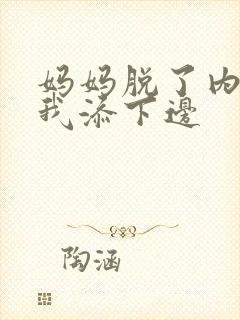 妈妈脱了内
我添下邊
陶涵